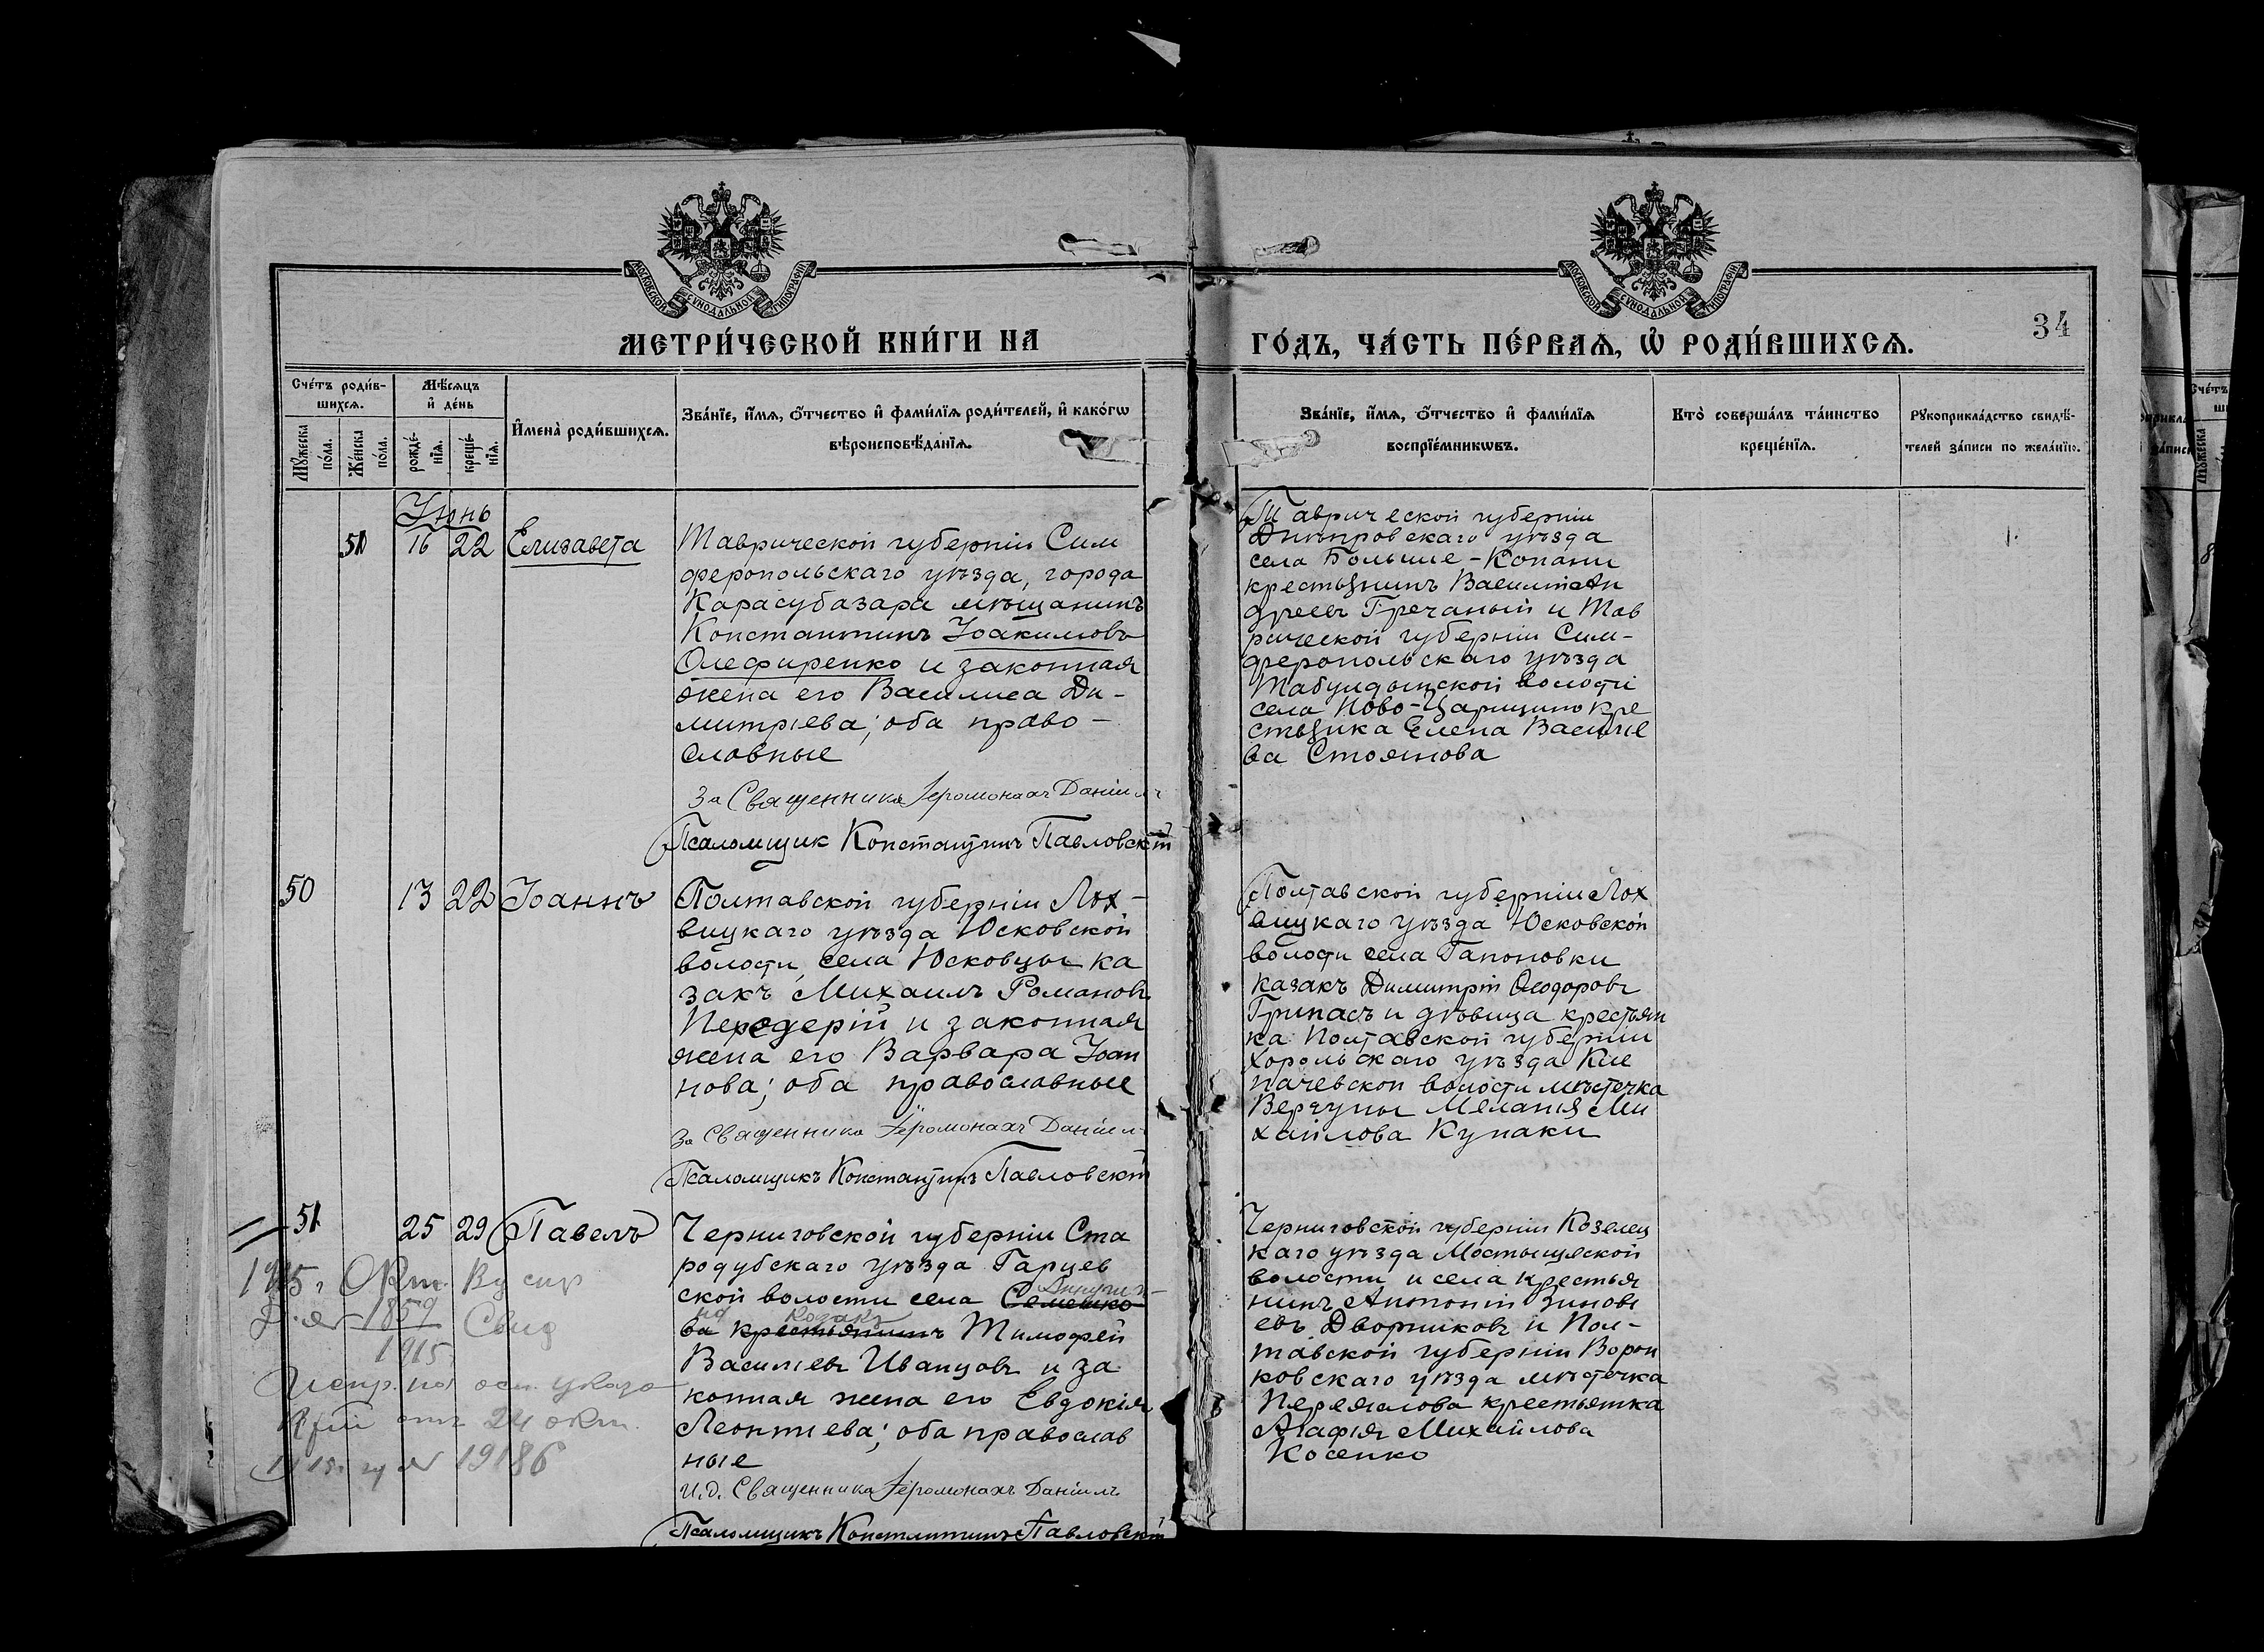 МОСКОВСКОЙ СѴНОДАЛЬНОЙ ТИПОГРАФІИ
МОСКОВСКОЙ СѴНОДАЛЬНОЙ ТИПОГРАФІИ
МЕТРИ́ЧЕСКОЙ КНИ́ГИ НА
ГО́ДЪ, ЧА́СТЬ ПЕ́РВАѦ, Ѡ҆ РОДИ́ВШИХСѦ.
34
Сче́тъ роди́в-
шихсѧ.
Мѣ́сѧцъ
и҆ де́нь
И҆мена̀ роди́вшихсѧ.
Зва́нїе, и҆́мѧ, ѻ҆́тчество и҆ фами́лїѧ роди́телей, и҆ како́гѡ
вѣроисповѣ́данїѧ.
Мꙋ́жеска
по́ла.
Же́нска
по́ла.
рожде́-
нїѧ.
креще́-
нїѧ.
Зва́нїе, и҆́мѧ, ѻ҆́тчество и҆ фами́лїѧ
воспрїе́мникѡвъ.
Кто̀ соверша́лъ та́инство
креще́нїѧ.
Рꙋкоприкла́дство свидѣ́-
телей за́писи по жела́нїю.
Іюнь
16 22 Елизавета
Таврической губерніи Сим
феропольскаго уѣзда, города
Карасубазара мѣщанинъ
Константинъ Іоакимовъ
Олефиренко и законная
жена его Василиса Ди-
митріева; оба право-
славные
За Священника Іеромонахъ Даніилъ
Псаломщик Константинъ Павловскій
Таврической губерніи
Днѣпровскаго уѣзда
села Больше-Копани
крестьянинъ Василій Ан
дреевъ Гречаный и Тав
рической губерніи Сим-
феропольскаго уѣзда
Табулдынской волости
села Ново-Царицино кре
стьянка Елена Василье
ва Стоянова
50 13 22 Іоаннъ
Полтавской губерніи Лох-
вицкаго уѣзда Юсковской
волости, села Юсковцы ка
закъ Михаилъ Романовъ
Передерій и законная
жена его Варвара Іоан
нова; оба православные
За Священника Іеромонахъ Даніилъ
Псаломщикъ Константинъ Павловскій
Полтавской губерніи Лох
вицкаго уѣзда Юсковской
волости села Гапоновки
казакъ Димитрій Ѳеодоровъ
Грипасъ и дѣвица крестьян
ка Полтавской губерніи
Хорольскаго уѣзда Кле
пачевской волости мѣстечка
Меланія Ми
хайлова Купаки
51 25 29 Павелъ
Черниговской губерніи Ста
родубскаго уѣзда Гарцев
ской волости села Семешко
ва крестьянинъ Тимофей
казакъ
Василіевъ Иванцовъ и за
конная жена его Евдокія
Леонтіева; оба православ
ные
И.д. Священника Іеромонахъ Даніилъ
Псаломщикъ Константинъ Павловскій
Черниговской губерніи Козелец
каго уѣзда Мостыщенской
волости и села крестья
нинъ Антоній Зиновь
евъ Дворниковъ и Пол-
тавской губерніи Ворон
ковскаго уѣзда мѣстечка
крестьянка
Агафія Михайлова
Косенко
1915 г. Окт.
1859
1915
Испр. на осн. указа
от 24 окт.
1915 г. № 19186